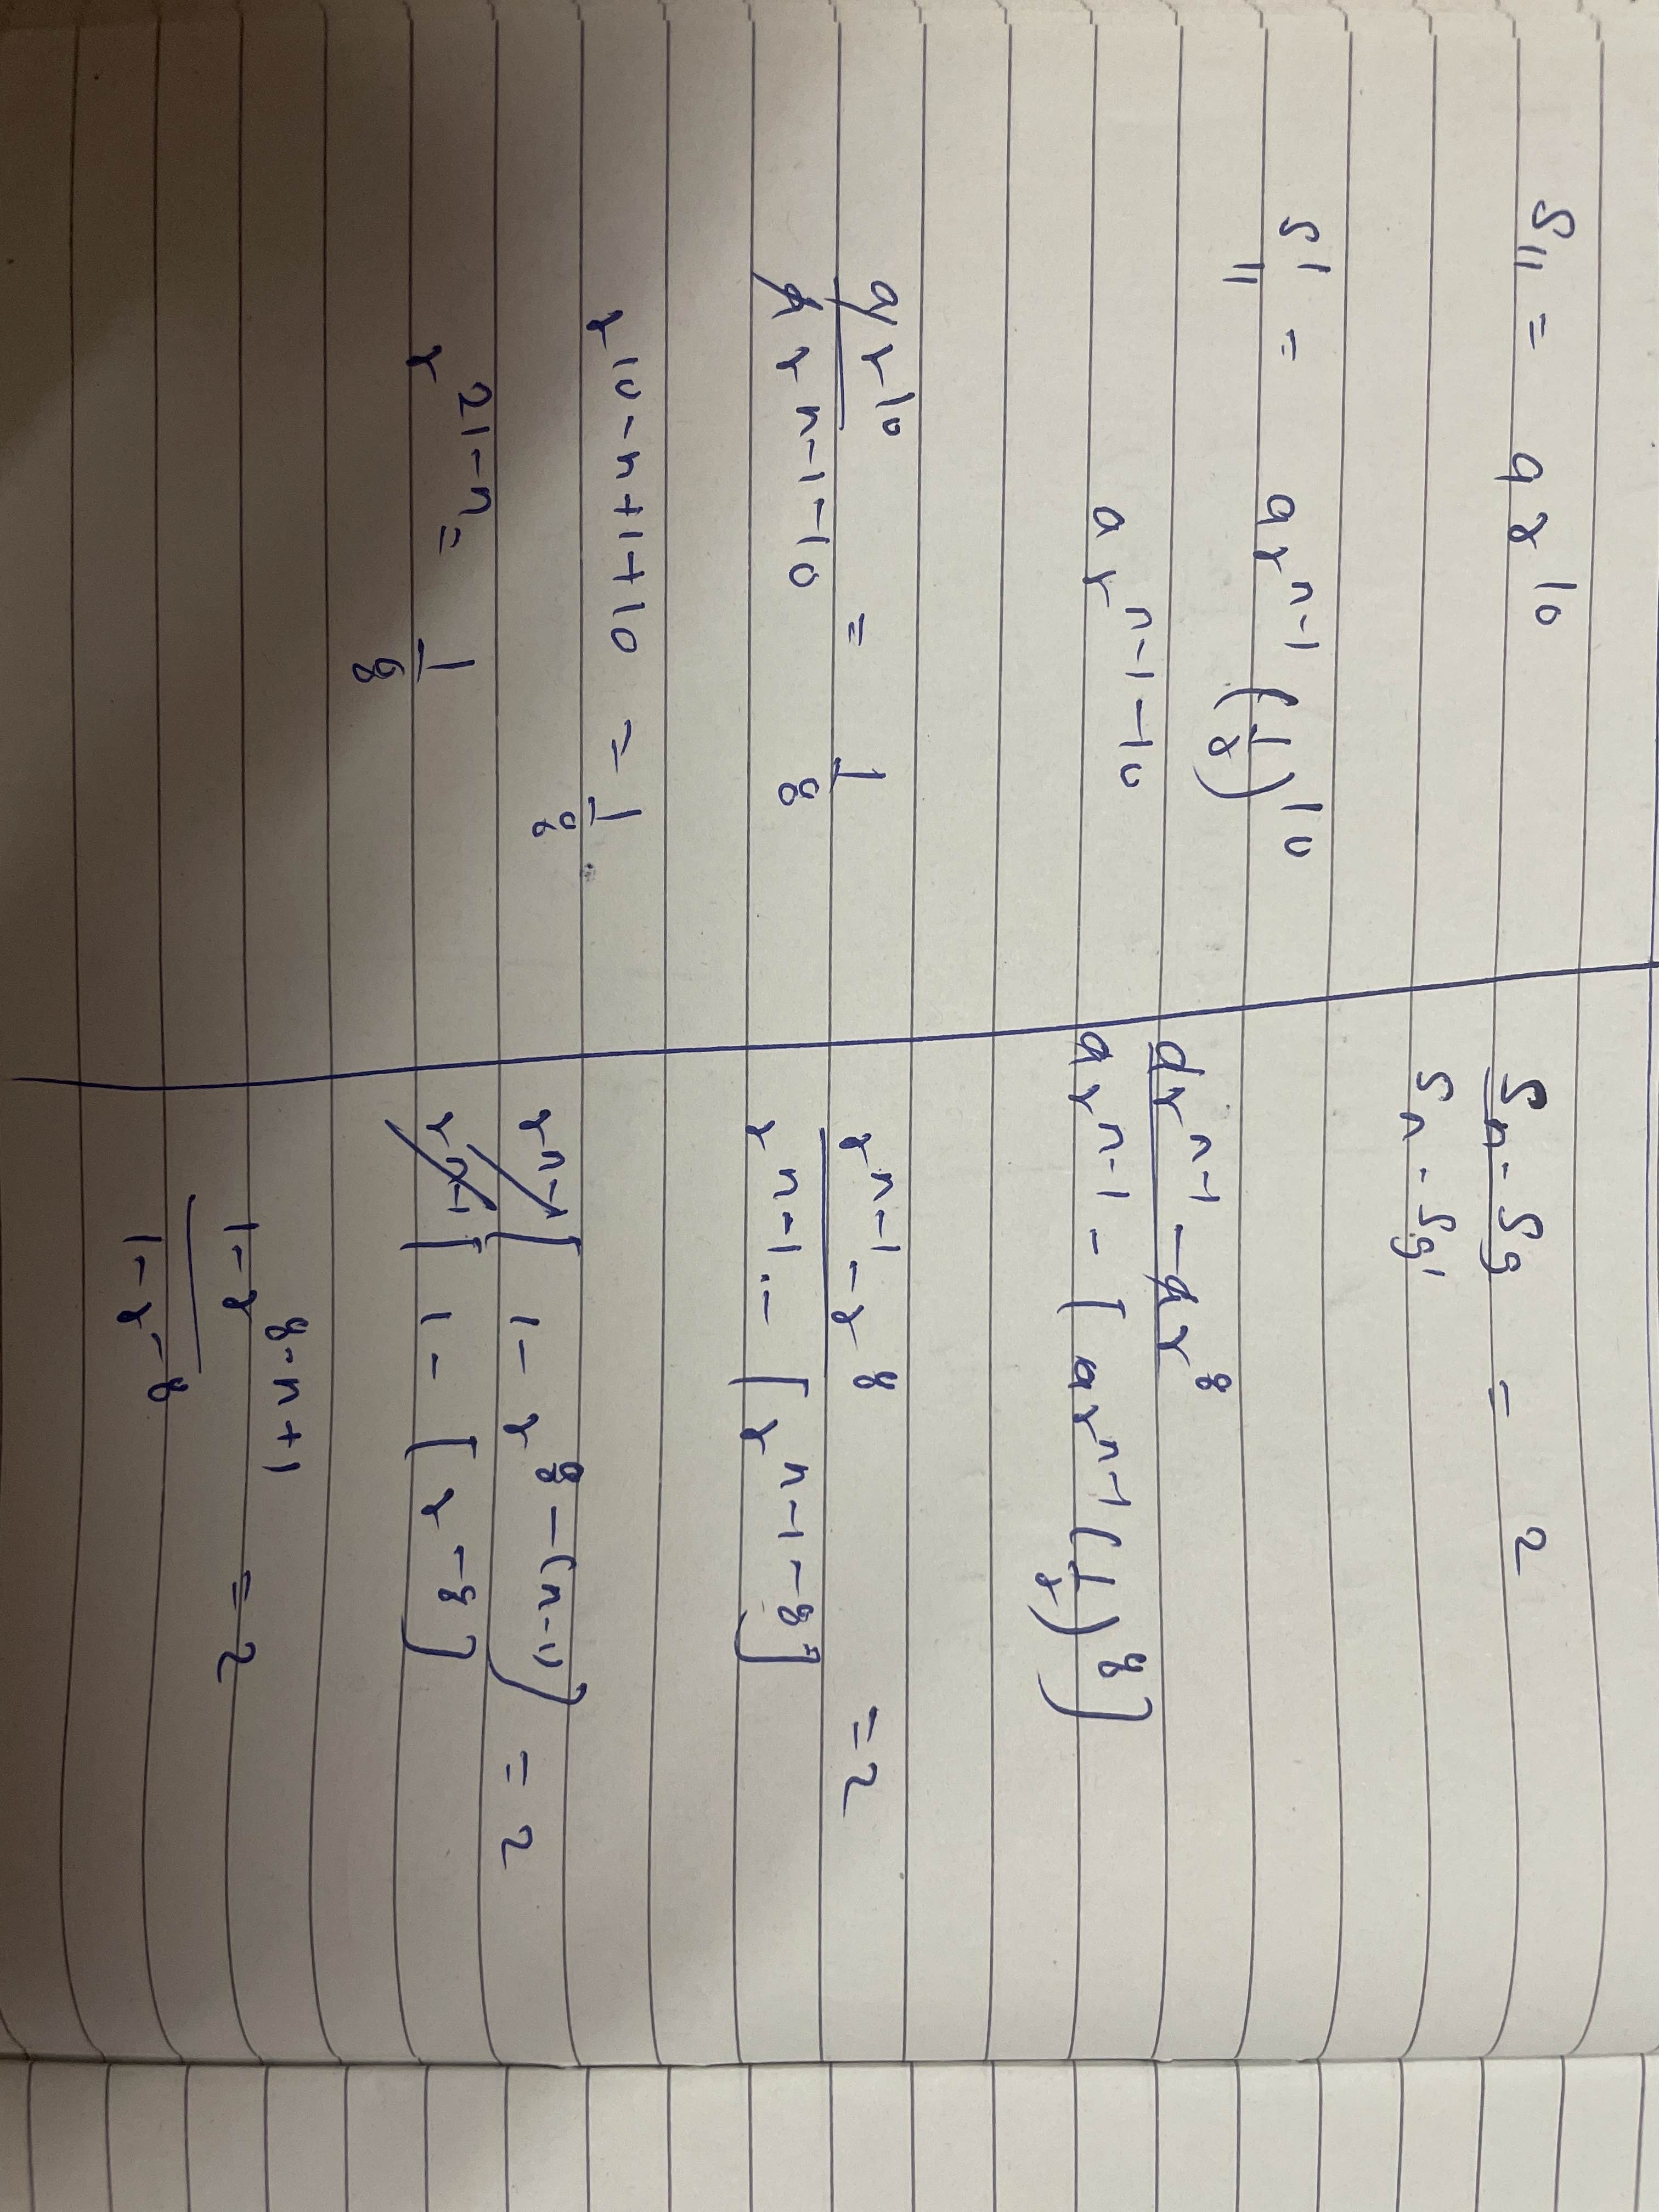 S₁₁ = a r¹⁰
S'₁₁ = a rⁿ⁻¹ (1/r)¹⁰
a rⁿ⁻¹⁻¹⁰
a r¹⁰ / a rⁿ⁻¹⁻¹⁰ = 1/8
r¹⁰⁻ⁿ⁺¹⁺¹⁰ = 1/8
r²¹⁻ⁿ = 1/8
Sₙ - S₉ / Sₙ - S₉' = 2
a rⁿ⁻¹ - a r⁸ / a rⁿ⁻¹ - [a rⁿ⁻¹ (1/r)⁸]
rⁿ⁻¹ - r⁸ / rⁿ⁻¹ - [rⁿ⁻¹⁻⁸] = 2
rⁿ⁻¹ [1 - r⁸⁻⁽ⁿ⁻¹⁾] / rⁿ⁻¹ [1 - [r⁻⁸] = 2
1 - r⁸⁻ⁿ⁺¹ / 1 - r⁻⁸ = 2